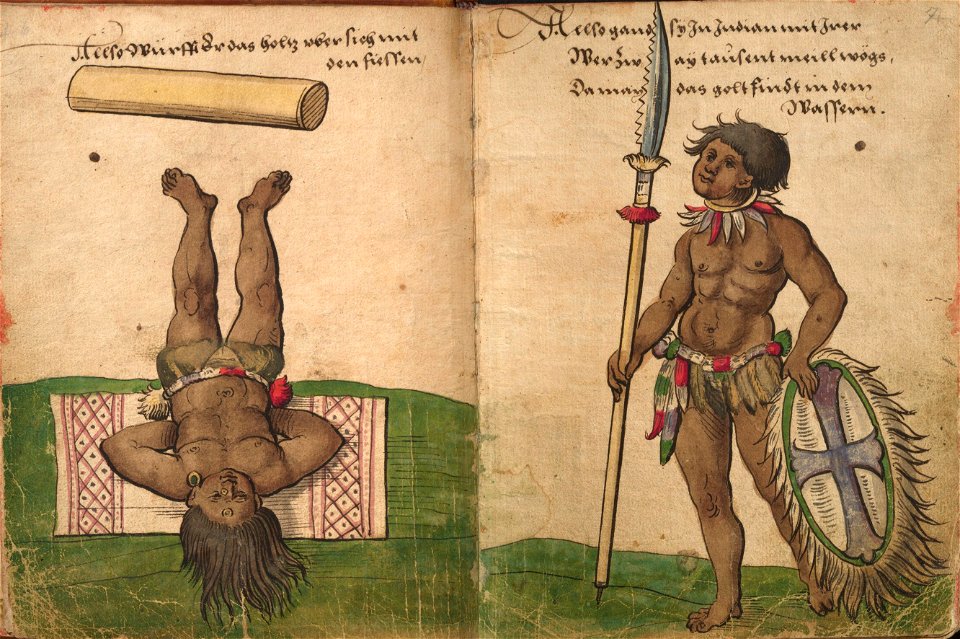 Allso Würfft Er das holtz uber sich mit
den fiessen /
Allso gand sy In Indian mit Irer
Wer Zway tausent meill wögs,
Da man das golt findt in dem
Wassern.